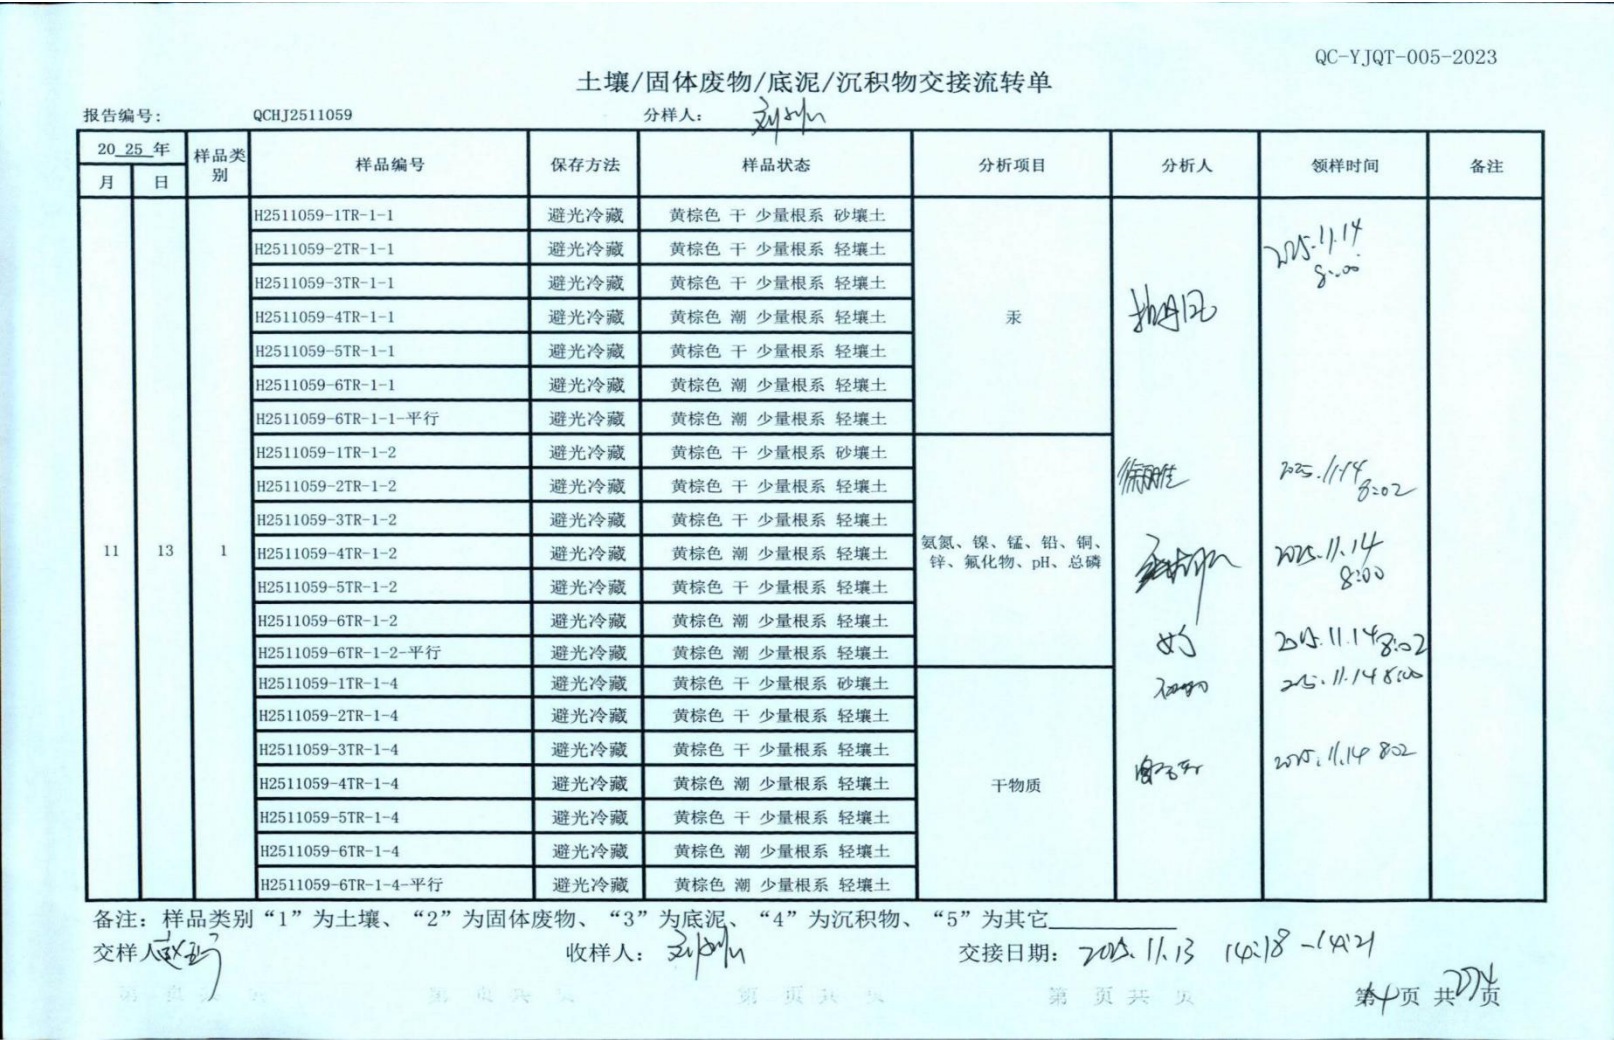 QC-YJQT-005-2023
土壤/固体废物/底泥/沉积物交接流转单
报告编号: QCHJ2511059 分样人:
20 25 年 样品类别 样品编号 保存方法 样品状态 分析项目 分析人 领样时间 备注
月 日
H2511059-1TR-1-1 避光冷藏 黄棕色 干 少量根系 砂壤土
H2511059-2TR-1-1 避光冷藏 黄棕色 干 少量根系 轻壤土 2025.11.14
H2511059-3TR-1-1 避光冷藏 黄棕色 干 少量根系 轻壤土 8:00
H2511059-4TR-1-1 避光冷藏 黄棕色 潮 少量根系 轻壤土 汞
H2511059-5TR-1-1 避光冷藏 黄棕色 干 少量根系 轻壤土
H2511059-6TR-1-1 避光冷藏 黄棕色 潮 少量根系 轻壤土
H2511059-6TR-1-1-平行 避光冷藏 黄棕色 潮 少量根系 轻壤土
H2511059-1TR-1-2 避光冷藏 黄棕色 干 少量根系 砂壤土
H2511059-2TR-1-2 避光冷藏 黄棕色 干 少量根系 轻壤土 2025.11.14 8:02
H2511059-3TR-1-2 避光冷藏 黄棕色 干 少量根系 轻壤土
11 13 1 H2511059-4TR-1-2 避光冷藏 黄棕色 潮 少量根系 轻壤土 氨氮、镍、锰、铅、铜、 2025.11.14
锌、氟化物、pH、总磷
H2511059-5TR-1-2 避光冷藏 黄棕色 干 少量根系 轻壤土 8:00
H2511059-6TR-1-2 避光冷藏 黄棕色 潮 少量根系 轻壤土
H2511059-6TR-1-2-平行 避光冷藏 黄棕色 潮 少量根系 轻壤土 2025.11.14 8:02
H2511059-1TR-1-4 避光冷藏 黄棕色 干 少量根系 砂壤土 2025.11.14 8:00
H2511059-2TR-1-4 避光冷藏 黄棕色 干 少量根系 轻壤土
H2511059-3TR-1-4 避光冷藏 黄棕色 干 少量根系 轻壤土 2025.11.14 8:02
H2511059-4TR-1-4 避光冷藏 黄棕色 潮 少量根系 轻壤土 干物质
H2511059-5TR-1-4 避光冷藏 黄棕色 干 少量根系 轻壤土
H2511059-6TR-1-4 避光冷藏 黄棕色 潮 少量根系 轻壤土
H2511059-6TR-1-4-平行 避光冷藏 黄棕色 潮 少量根系 轻壤土
备注: 样品类别“1”为土壤、“2”为固体废物、“3”为底泥、“4”为沉积物、“5”为其它
交样人 收样人: 交接日期: 2025.11.13 14:18-14:21
第4页 共274页